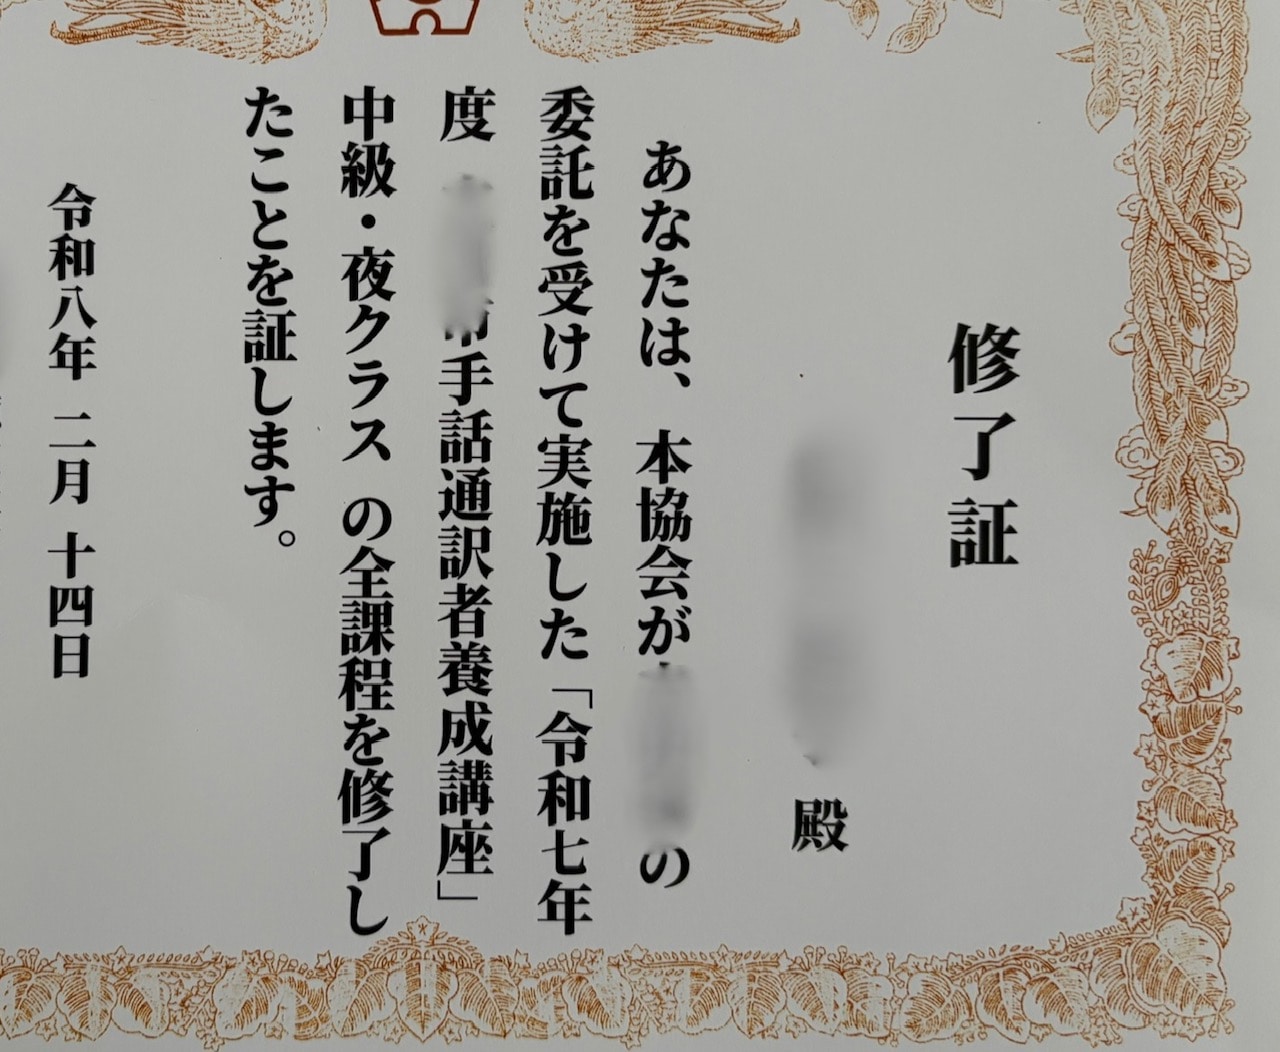 修了証
殿
あなたは、本協会が の
委託を受けて実施した「令和七年
度 市手話通訳者養成講座」
中級・夜クラス の全課程を修了し
たことを証します。
令和八年 二月 十四日